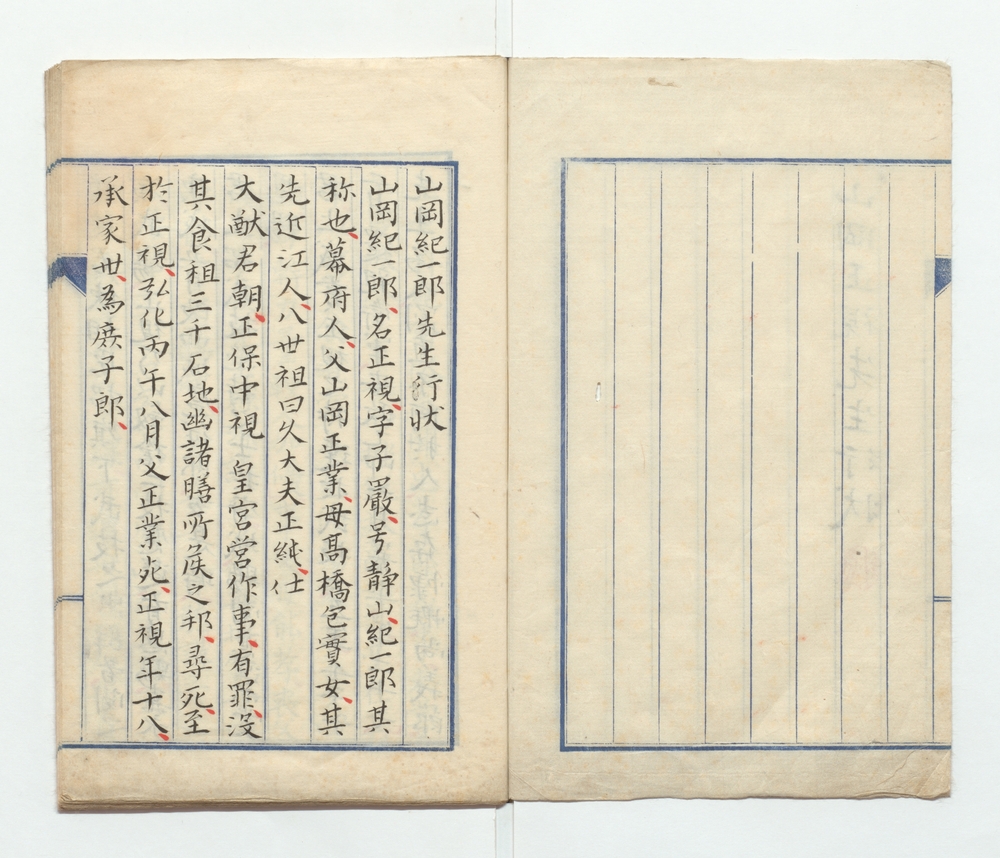 山岡紀一郎先生行状
山岡紀一郎、名正視、字子嚴、号静山、紀一郎其
称也、幕府人、父山岡正業、母高橋包實女、其
先近江人、八世祖曰久大夫正純、仕
大猷君朝、正保中視　皇宮営作事、有罪、没
其食租三千石地、幽諸膳所侯之邦、尋死、至
於正視、弘化丙午八月父正業死、正視年十八、
承家世、為庶子郎、